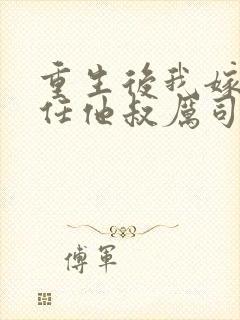 重生後我嫁
任他叔厲司
傅軍